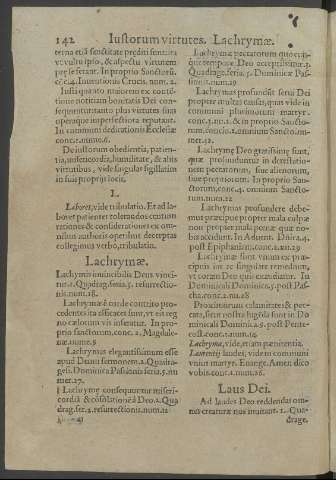 142 Iustorum virtutes. Lachrymæ.
terna etiã sanctitate prediti sunt, ita
vt vultu ipso, & aspectu virtutem
præseferant. In proprio Sanctorũ.
& cia. Inuentionis Crucis. num. 2.
Iusti quanto maiorem ex contẽ-
tione notitiam bonitatis Dei con-
sequuntur tanto plus virtutes suas
operaque imperfectiora reputant.
In communi dedicationis Ecclesiæ
conc. 1. num. 6.
De iustorum obedientia, patien-
tia, misericordia, humilitate, & alijs
virtutibus, vide singulas sigillatim
in suis proprijs locis.
L.
Labores, vide tribulatio. Et ad la-
bores patienter tolerandos cruatum
rationes & considerationes ex om-
nibus authoris operibus decerptas
collegimus verbo, tribulatio.
Lachrymæ.
Lachrymis inuincibilis Deus vinci-
tur. 2. Quadrag. feria. 5. resurrectio-
nis. num. 18.
Lachrymæ è corde contrito pro-
cedentes ita efficaces sunt, vt eis reg
no cælorum vis inferatur. In pro-
prio sanctorum, conc. 2. Magdale-
næ. num. 5
Lachrymas elegantissimum esse
apud Deum sermonem. 2. Quadra-
ges. Dominica Passionis feria. 5. nu
mer. 27.
Lachrymę consequuntur miseri-
cordiã & cõsolationẽ à Deo. 2. Qua
drag. fer. 2. resurrectionis. num. 21
Lachrymæ peccatorum quocun-
que tempore Deo acceptissimæ. 3.
Quadrag. feria. 5. Dominicæ Pas-
sionis. num. 29
Lachrymas profundũt serui Dei
propter multas causas, quas vide in
communi plurimorum martyr.
conc. 3. nu. 1. & in proprio Sancto-
rum, concio. 1. omnium Sancto. nu-
mer. 12.
Lachrymę Deo gratissimę sunt,
quæ profunduntur in detestatio-
nem peccatorum, siue alienorum,
siue propriorum. In proprio San-
ctorum, conc. 4. omnium Sancto-
rum. num. 22
Lachrymas profundere debe-
mus præcipue propter mala culpæ
non propter mala penæ quæ no-
bis accidunt. In Aduent. Dñica. 4.
post Epiphaniam. conc. 2. nu. 29
Lachrymæ sunt vnum ex præ-
cipuis ini re singulare remedium,
vt coram Deo quis exaudiatur. In
Dominicalis Dominica. 5. post Pas-
cha. conc. 2. nu. 28
Proximorum calamitates & pec-
cata, sicut nostra lugẽda sunt in Do
minicali Dominica. 5. post Pente-
cost. conc. 1. nu. 19.
Lachryma, vide, etiam pænitentia.
Laurentij laudes, vide in communi
vnius martyr. Euange. Amen dico
vobis. conc. 1. num. 26.
Laus Dei.
Ad laudes Deo reddendas om-
nes creaturæ nos inuitant. 1. Qua-
drage.